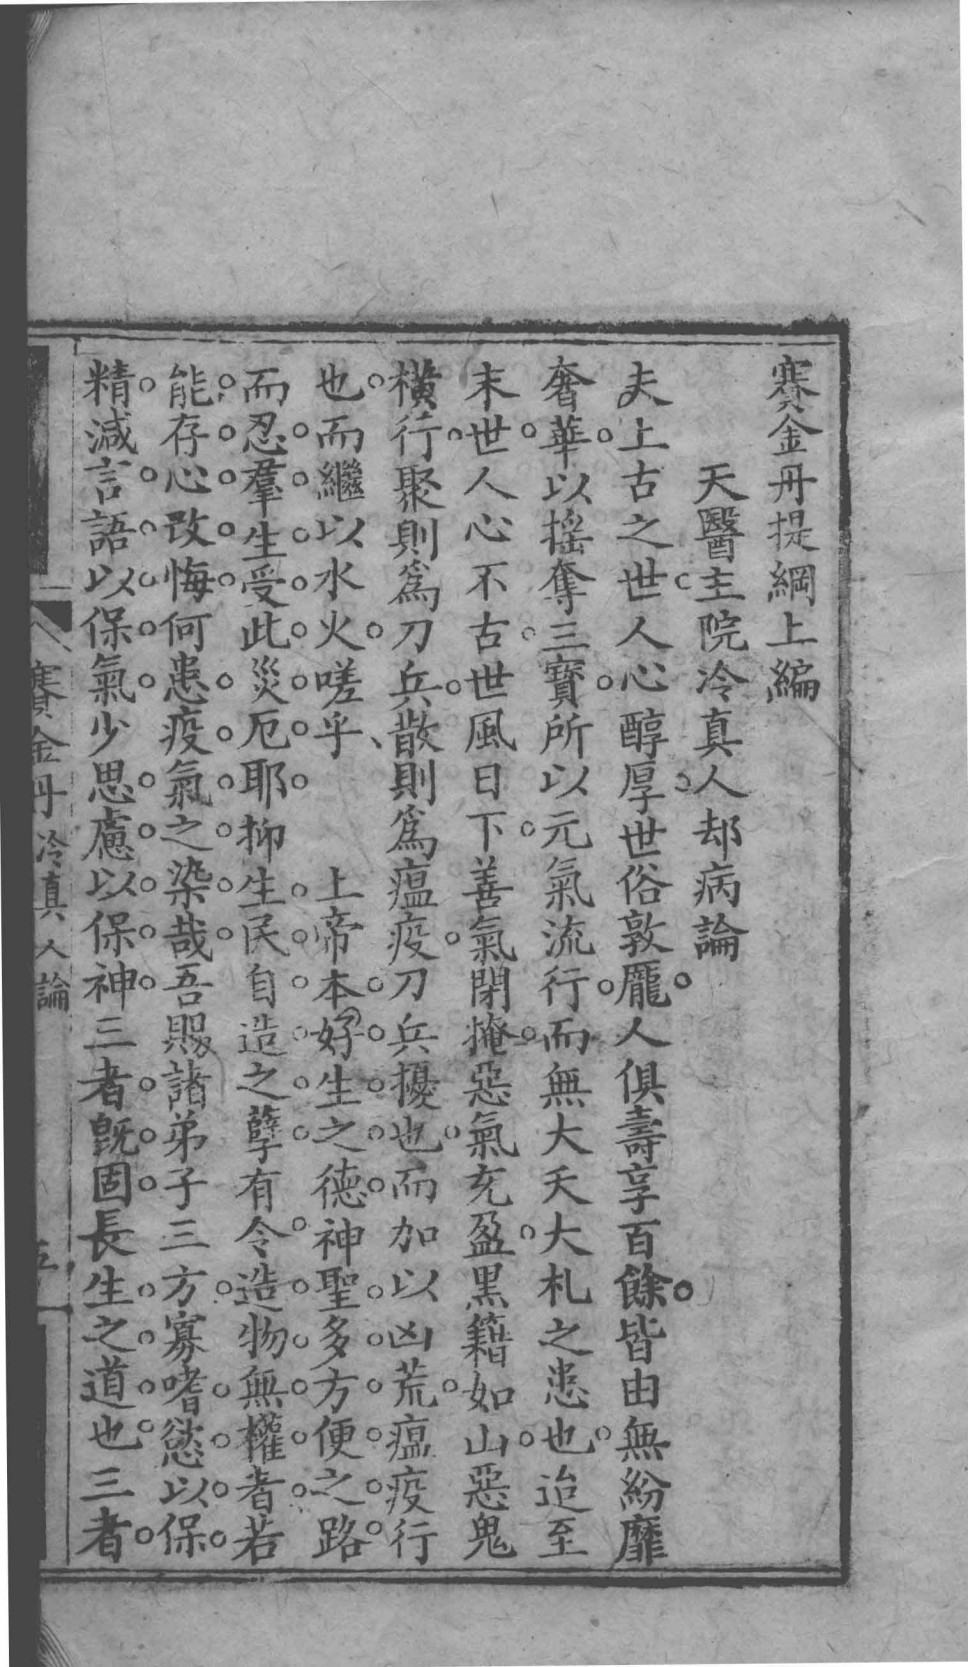 賽金丹提綱上編
天醫主院冷真人却病論
夫上古之世人心醇厚世俗敦龎人俱壽享百餘皆由無紛靡
奢華以搖奪三寳所以元氣流行而無大夭大札之患也迨至
末世人心不古世風日下善氣閉掩惡氣充盈黒籍如山惡鬼
橫行聚則為刀兵散則為瘟疫刀兵擾也而加以凶荒瘟疫行
也而繼以水火嗟乎、上帝本好生之德神聖多方便之路
而忍羣生受此災厄耶抑生民自造之孽有令造物無權者若
能存心改悔何患疫氣之染哉吾賜諸弟子三方寡嗜慾以保
精減言語以保氣少思慮以保神三者旣固長生之道也三者
賽金丹 冷真人論 五